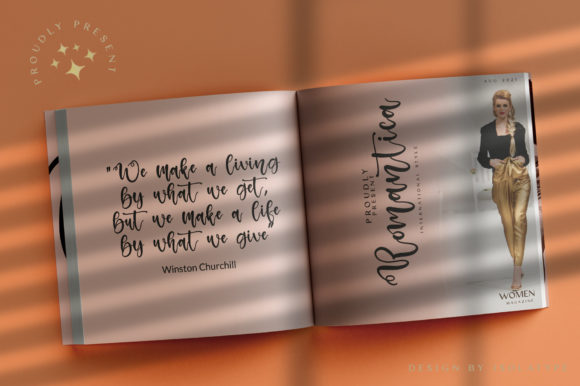 PROUDLY PRESENT
"We make a living
by what we get,
but we make a life
by what we give"
Winston Churchill
PROUDLY
PRESENT
Romantica
INTERNATIONAL STYLE
AUG 2021
WOMEN
MAGAZINE
DESIGN BY